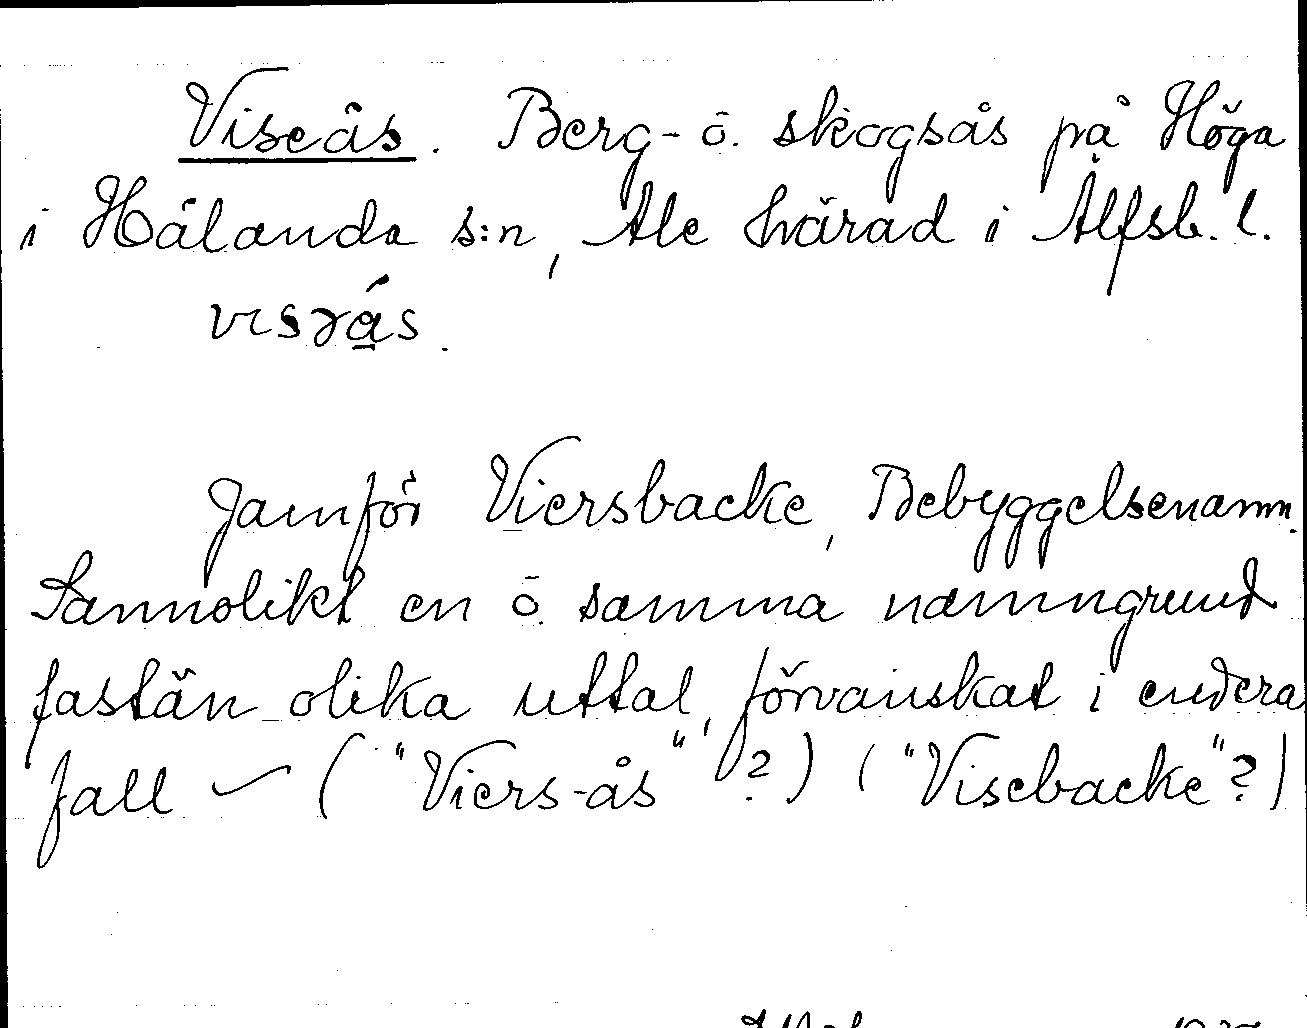 Viseås. Berg- o. skogsås på Höga
i Hålanda s:n, Ale härad i Älfsb. l.
visɤás.
Jämför Viersbacke, Bebyggelsenamn.
Sannolikt en o. samma namngrund
fastän olika uttal, förvanskat i endera
fall – ("Viers-ås"?) ("Visebacke"?)